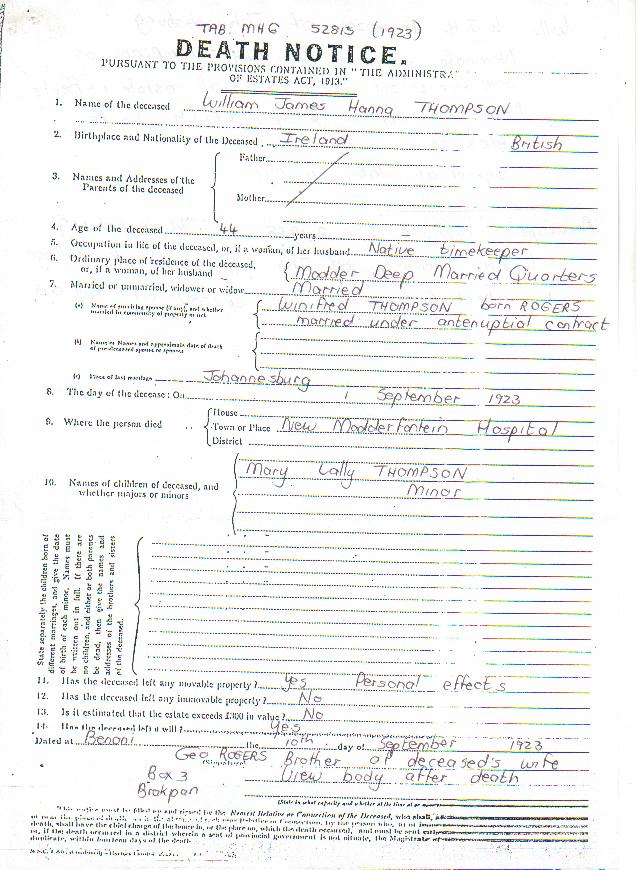 TAB MHG 52815 (1923)
DEATH NOTICE.
PURSUANT TO THE PROVISIONS CONTAINED IN "THE ADMINISTRA
OF ESTATES ACT, 1913."
1. Name of the deceased William James Hanna THOMPSON
2. Birthplace and Nationality of the Deceased Ireland British
3. Names and Addresses of the Parents of the deceased
Father
Mother
4. Age of the deceased 44 years –
5. Occupation in life of the deceased, or, if a woman, of her husband Native timekeeper
6. Ordinary place of residence of the deceased, or, if a woman, of her husband Modder Deep Married Quarters
7. Married or unmarried, widower or widow Married
(a) Name of surviving spouse (if any), and whether married in community of property or not
Winifred THOMPSON born ROGERS
married under antenuptial contract
(b) Name or Names and approximate date of death of pre-deceased spouse or spouses
(c) Place of last marriage Johannesburg
8. The day of the decease: On 1 September 1923
9. Where the person died
House
Town or Place New Modderfontein Hospital
District
10. Names of children of deceased, and whether majors or minors
Mary Lally THOMPSON
Minor
State separately the children born of
different marriages, and give the date
of birth of each minor. Names must
be written out in full. If there are
no children, and either or both parents
be dead, then give the names and
addresses of the brothers and sisters
of the deceased.
11. Has the deceased left any movable property? Yes Personal effects
12. Has the deceased left any immovable property? No
13. Is it estimated that the estate exceeds £300 in value? No
14. Has the deceased left a will? Yes
Dated at Benoni the 10th day of September 1923
Geo ROGERS Brother of deceased's wife
(Signature)
Box 3 View body after death
Brakpan
(State in what capacity and whether at the time at or near)
This notice must be filled up and signed by the Nearest Relative or Connection of the Deceased, who shall
death, shall have the chief charge of the house in, or the place on, which the death occurred, and must be sent
or, if the death occurred in a district wherein a seat of provincial government is not situate, the Magistrate of
duplicate, within fourteen days of the death